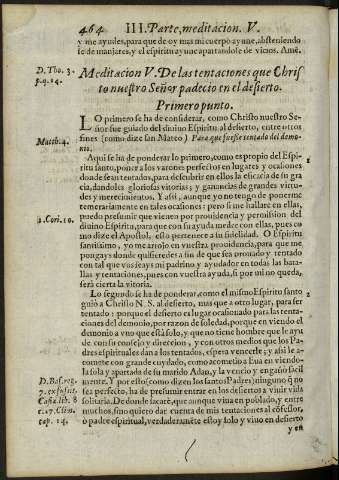 464 III. Parte, meditacion. V.
y me ayudes, para que de oy mas mi cuerpo ayune, absteniendo
se de manjares, y el espiritu ayune apartandose de vicios. Amē.
D. Tho. 3.
p. q. 14.
Meditacion V. De las tentaciones que Chris
to nuestro Señor padecio en el desierto.
Primero punto.
LO primero se ha de considerar, como Christo nuestro Se-
ñor fue guiado del diuino Espiritu al desierto, entre otros
fines (como dize san Mateo) Para que fuesse tentado del demo-
nio.
Matth. 4.
Aqui se ha de ponderar lo primero, como es propio del Espi-
ritu santo, poner a los varones perfectos en lugares y ocasiones
donde sean tentados, para descubrir en ellos la eficacia de su gra
cia, dandoles gloriosas vitorias; y ganancias de grandes virtu-
des y merecimientos. Y assi, aunque yo no tengo de ponerme
temerariamente en tales ocasiones: pero si me hallare en ellas,
puedo presumir que vienen por prouidencia y permission del
diuino Espiritu, para que con su ayuda medre con ellas, pues co
mo dize el Apostol, esto pertenece a su fidelidad. O Espiritu
santissimo, yo me arrojo en vuestra prouidencia, para que me
pongays donde quisieredes a fin de que sea prouado y tentado
con tal que vos seays mi padrino y ayudador en todas las bata-
llas y tentaciones, pues con vuestra ayuda, si por mi no queda,
será cierta la vitoria.
1. Cori. 10.
Lo segundo se ha de ponderar, como el mismo Espiritu santo
guiò a Christo N. S. al desierto, mas que a otro lugar, para ser
tentado: porque el desierto es lugar ocasionado para las tenta-
ciones del demonio, por razon de soledad, porque en viendo el
demonio a vno que està solo, y que no tiene hombre que le ayu
de con su consejo y direccion, y con otros medios que los Pa-
dres espirituales dan a los tentados, espera vencerle; y assi le a-
comete con grande cuydado, como acometio a Eua en viendo-
la sola y apartada de su marido Adan, y la vencio y engañò facil
mente. Y por esto (como dizen los santos Padres) ninguno q̃ no
sea perfecto, ha de presumir entrar en los desiertos a viuir vida
solitaria. De donde sacarè, que aunque viua en poblado, y entre
muchos, sino quiero dar cuenta de mis tentaciones al cōfessor,
ò padre espiritual, verdaderamēte estoy solo y viuo en desierto
D. Bas. reg.
7. ex fusius
Casia. lib. 8
c. 17. Clim.
cap. 14.
y en